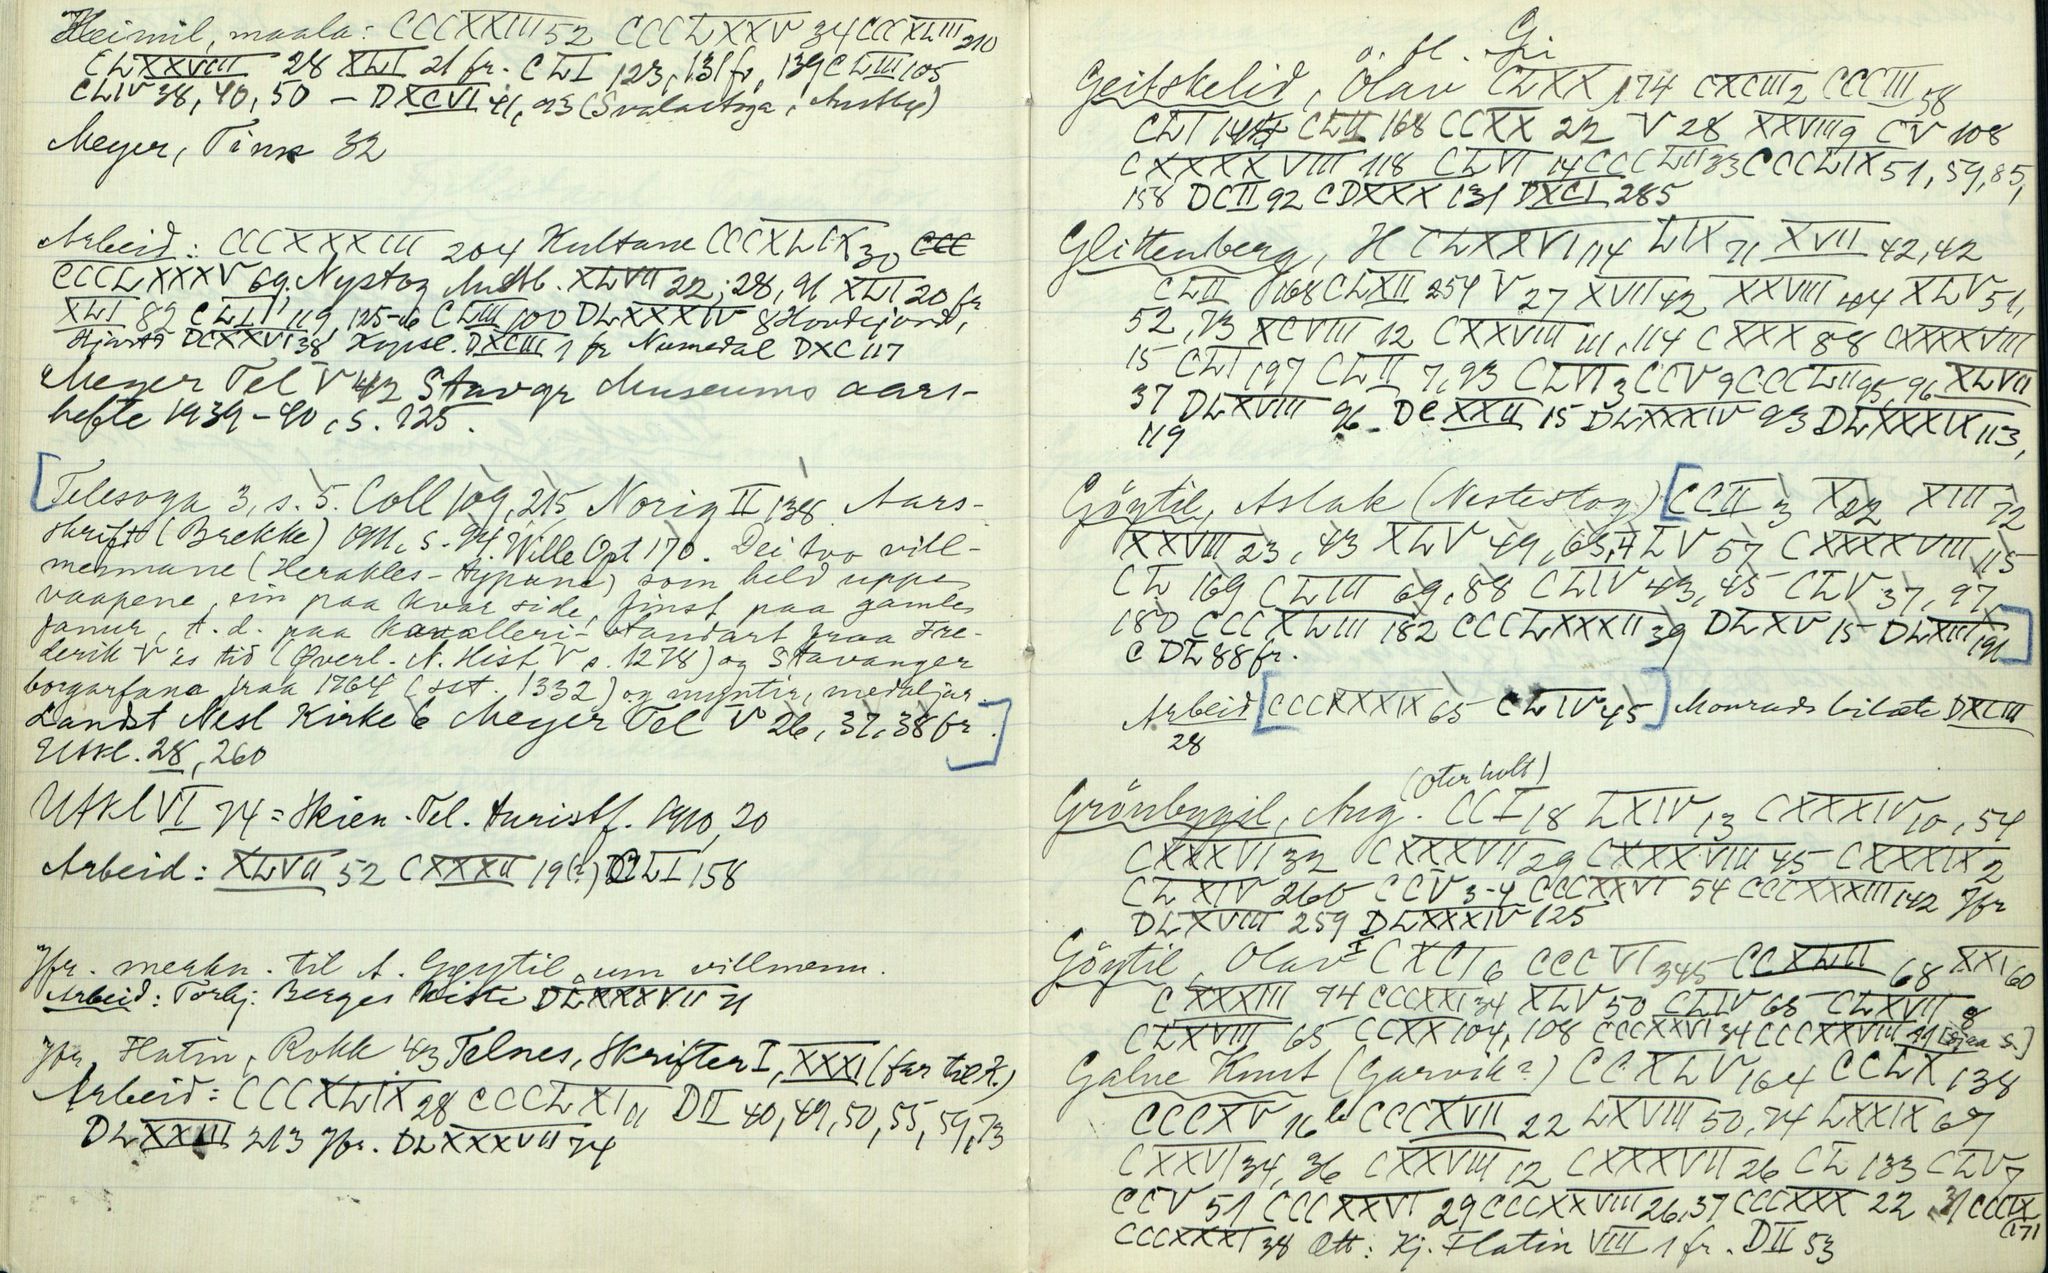 Heimil, maala: CCCXXXIII 52 CCCLXXV 34 CCCXLIII 210
CLXXVIII 28 XLI 21 fr. CLI 123, 131 fr, 139 CLIII 105
CLIV 38, 40, 50 – DXCVI 41, 93 (Svalastoga, Austbø)
Meyer, Tinn 32
Arbeid: CCCXXXIII 204 Hultane CCCXLIX 30 CCC
CCCLXXXV 69. Nystog Austb. XLVII 22; 28, 91 XLI 20 fr
XLI 82 CLII 119, 125-16 CLIII 100 DLXXXIV 8 Hovdejord,
Hjartd DCXXVI 38 Hypsl. DXCIII 1 fr Numedal DXC 117
Meyer Tel V 42 Stavgr Museums aars-
hefte 1939-40, s. 125.
Telesoga 3, s. 5. Coll 109, 215 Norig II 138 Aars-
skrift (Brekke) 1911, s. 94. Wille Opt 170. Dei tvo vill-
mennane (Herakles-typane) som held uppe
vaapene, ein paa kvar side, finst paa gamle
fanur, t.d. paa kavalleri-standart fraa Fre-
derik V's tid (Øverl. N. Hist V s. 1278) og Stavanger
borgarfana fraa 1764 (sst. 1332) og myntir, medaljar.
Landst Nesl Kirke 6 Meyer Tel V 26, 37, 38 fr.
Utkl. 28, 260
Utkl VI 74 = Skien-Tel. Turistf. 1910, 20
Arbeid: XLVII 52 CXXXII 19 (?) DLI 158
Jfr. merkn. til A. Gøytil um villmenn.
Arbeid: Torbj. Berges kiste DLXXXVII 71
Jfr. Flatin, Rokk 43 Telnes, Skrifter I, XXXI (far til K.)
Arbeid: CCCXLIX 28 CCCLXI 11 DII 40, 49, 50, 55, 59, 73
DLXXIII 213 Jfr. DLXXXVII 74
G
Geitskelid, Olav CLXX 174 CXCIII 2 CCCIII 58
CLI 148 CLII 168 CCXX 22 V 28 XXVIII 9 CV 108
CXXXXVIII 118 CLVI 14 CCCLII 33 CCCLIX 51, 59, 85,
158 DCII 92 CDXXX 131 DXCI 285
Glittenberg, H CLXXVI 114 LIX 71 XVII 42, 42
CLII 168 CLXII 254 V 27 XVII 42 XXVIII 44 XLV 51,
52, 73 XCVIII 12 CXXVIII 111, 114 CXXX 88 CXXXXVIII
15 CLI 197 CLII 7, 93 CLVI 3 CCV 9 CCCLII 95, 96 XLVII
37 DLXVIII 96 – DCXXII 15 DLXXXIV 93 DLXXXIX 113,
119
Göytil, Aslak (Nestestog) [CCII 3 X 22 XIII 72
XXVIII 23, 43 XLV 49, 63, 4 LV 57 CXXXXVIII 115
CL 169 CLIII 69, 88 CLIV 43, 45 CLV 37, 97,
180 CCCXLIII 182 CCCLXXXII 39 DLXV 15 DLXIII 191]
CDL 88 fr.
Arbeid [CCCXXXIX 65 CLIV 45] Monrads bilæte DXCIII
28
(Oterholt)
Grönbygil, Aug. CCI 18 LXIV 13 CXXXIV 10, 54
CXXXVI 32 CXXXVII 29 CXXXVIII 45 CXXXIX 2
CLXIV 260 CCV 3-4 CCCXXVI 54 CCCXXXIII 142 Jfr
DLXVIII 259 DLXXXIV 125
Göytil, Olav I CXCI 6 CCCVI 345 CCXLII 68 XXI 60
CXXXIII 94 CCCXXI 34 XLV 50 CLIV 65 CLXVII 8
CLXVIII 65 CCXX 104, 108 CCCXXVI 34 CCCXXVIII 49 [sjaa s.]
Galne Knut (Garvik?) CCXLV 164 CCLX 138
CCCXV 16 b CCCXVII 22 LXVIII 50, 74 LXXIX 67
CXXVI 34, 36 CXXVIII 12 CXXXVII 26 CL 133 CLV 7
CCV 51 CCCXXVI 29 CCCXXVIII 26, 37 CCCXXX 22 31 CCCIX
(171
CCCXXXI 38 Ætt: Kj. Flatin VIII 1 fr. DII 53